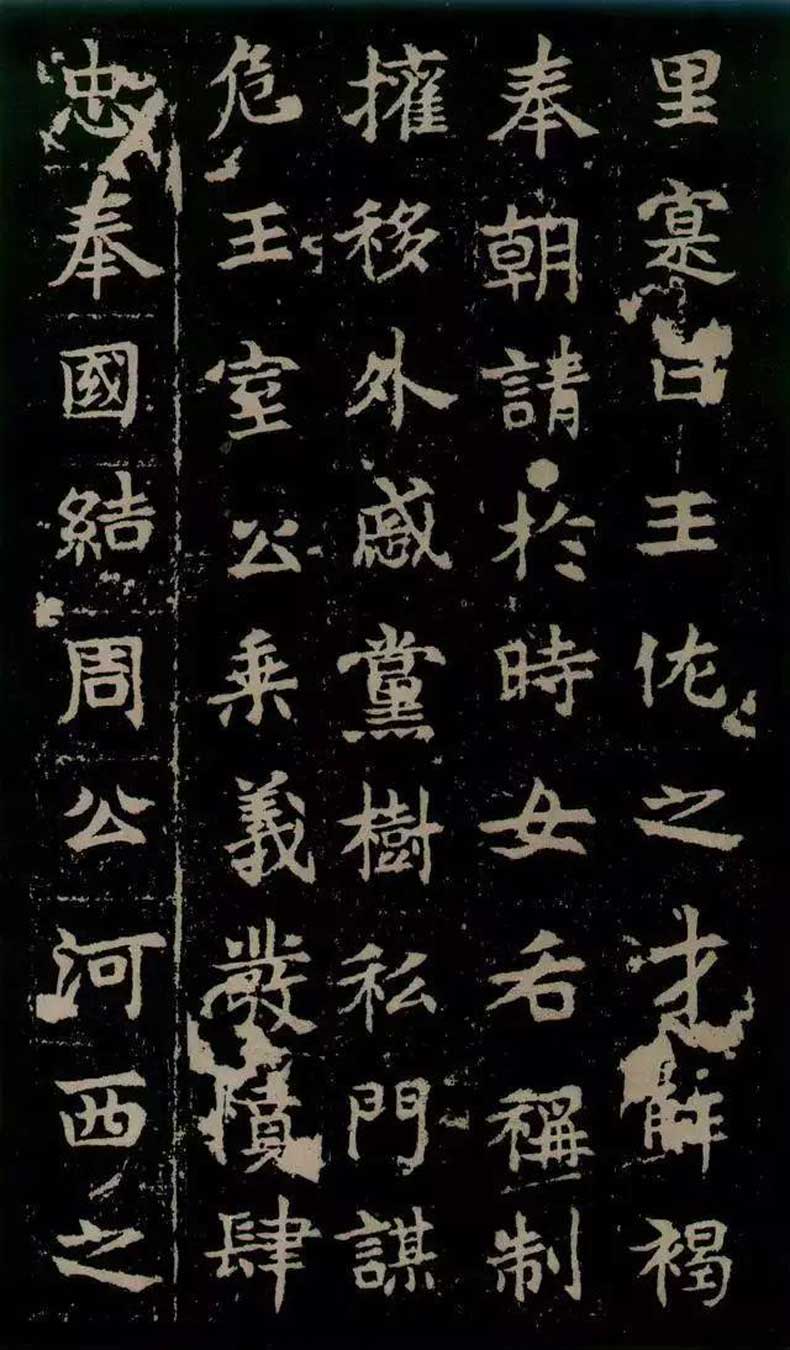 里寔曰王佐之才解褐
奉朝請於時女后稱制
權移外戚黨樹私門謀
危王室公乘義發憤肆
忠奉國結周公河西之